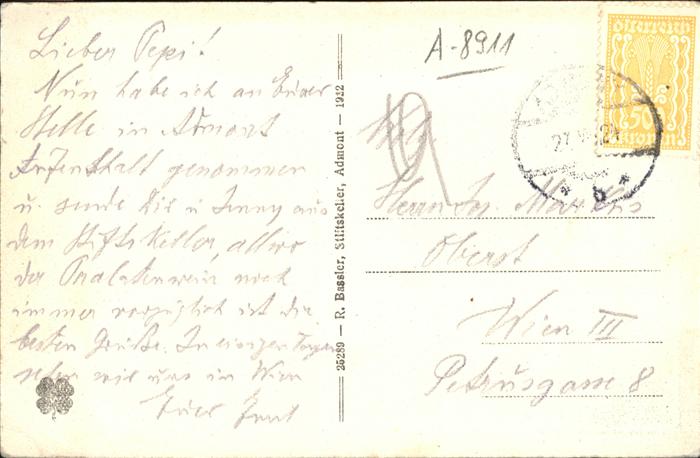 Lieber Pepi!
Nun habe ich an Eurer
Stelle in Admont
Aufenthalt genommen
u. sende Dir u Jenny aus
dem Stiftskeller, allwo
der Prälatenwein noch
immer vorzüglich ist die
besten Grüße. In einigen Tagen
sehen wir uns in Wien
Euer Ernst
25289 — R. Bassler, Stiftskeller, Admont — 1922
A-8911
Österreich
50
Kronen
27
24
* b *
Herrn Ing.
Oberst
Wien III
Petrusgasse 8